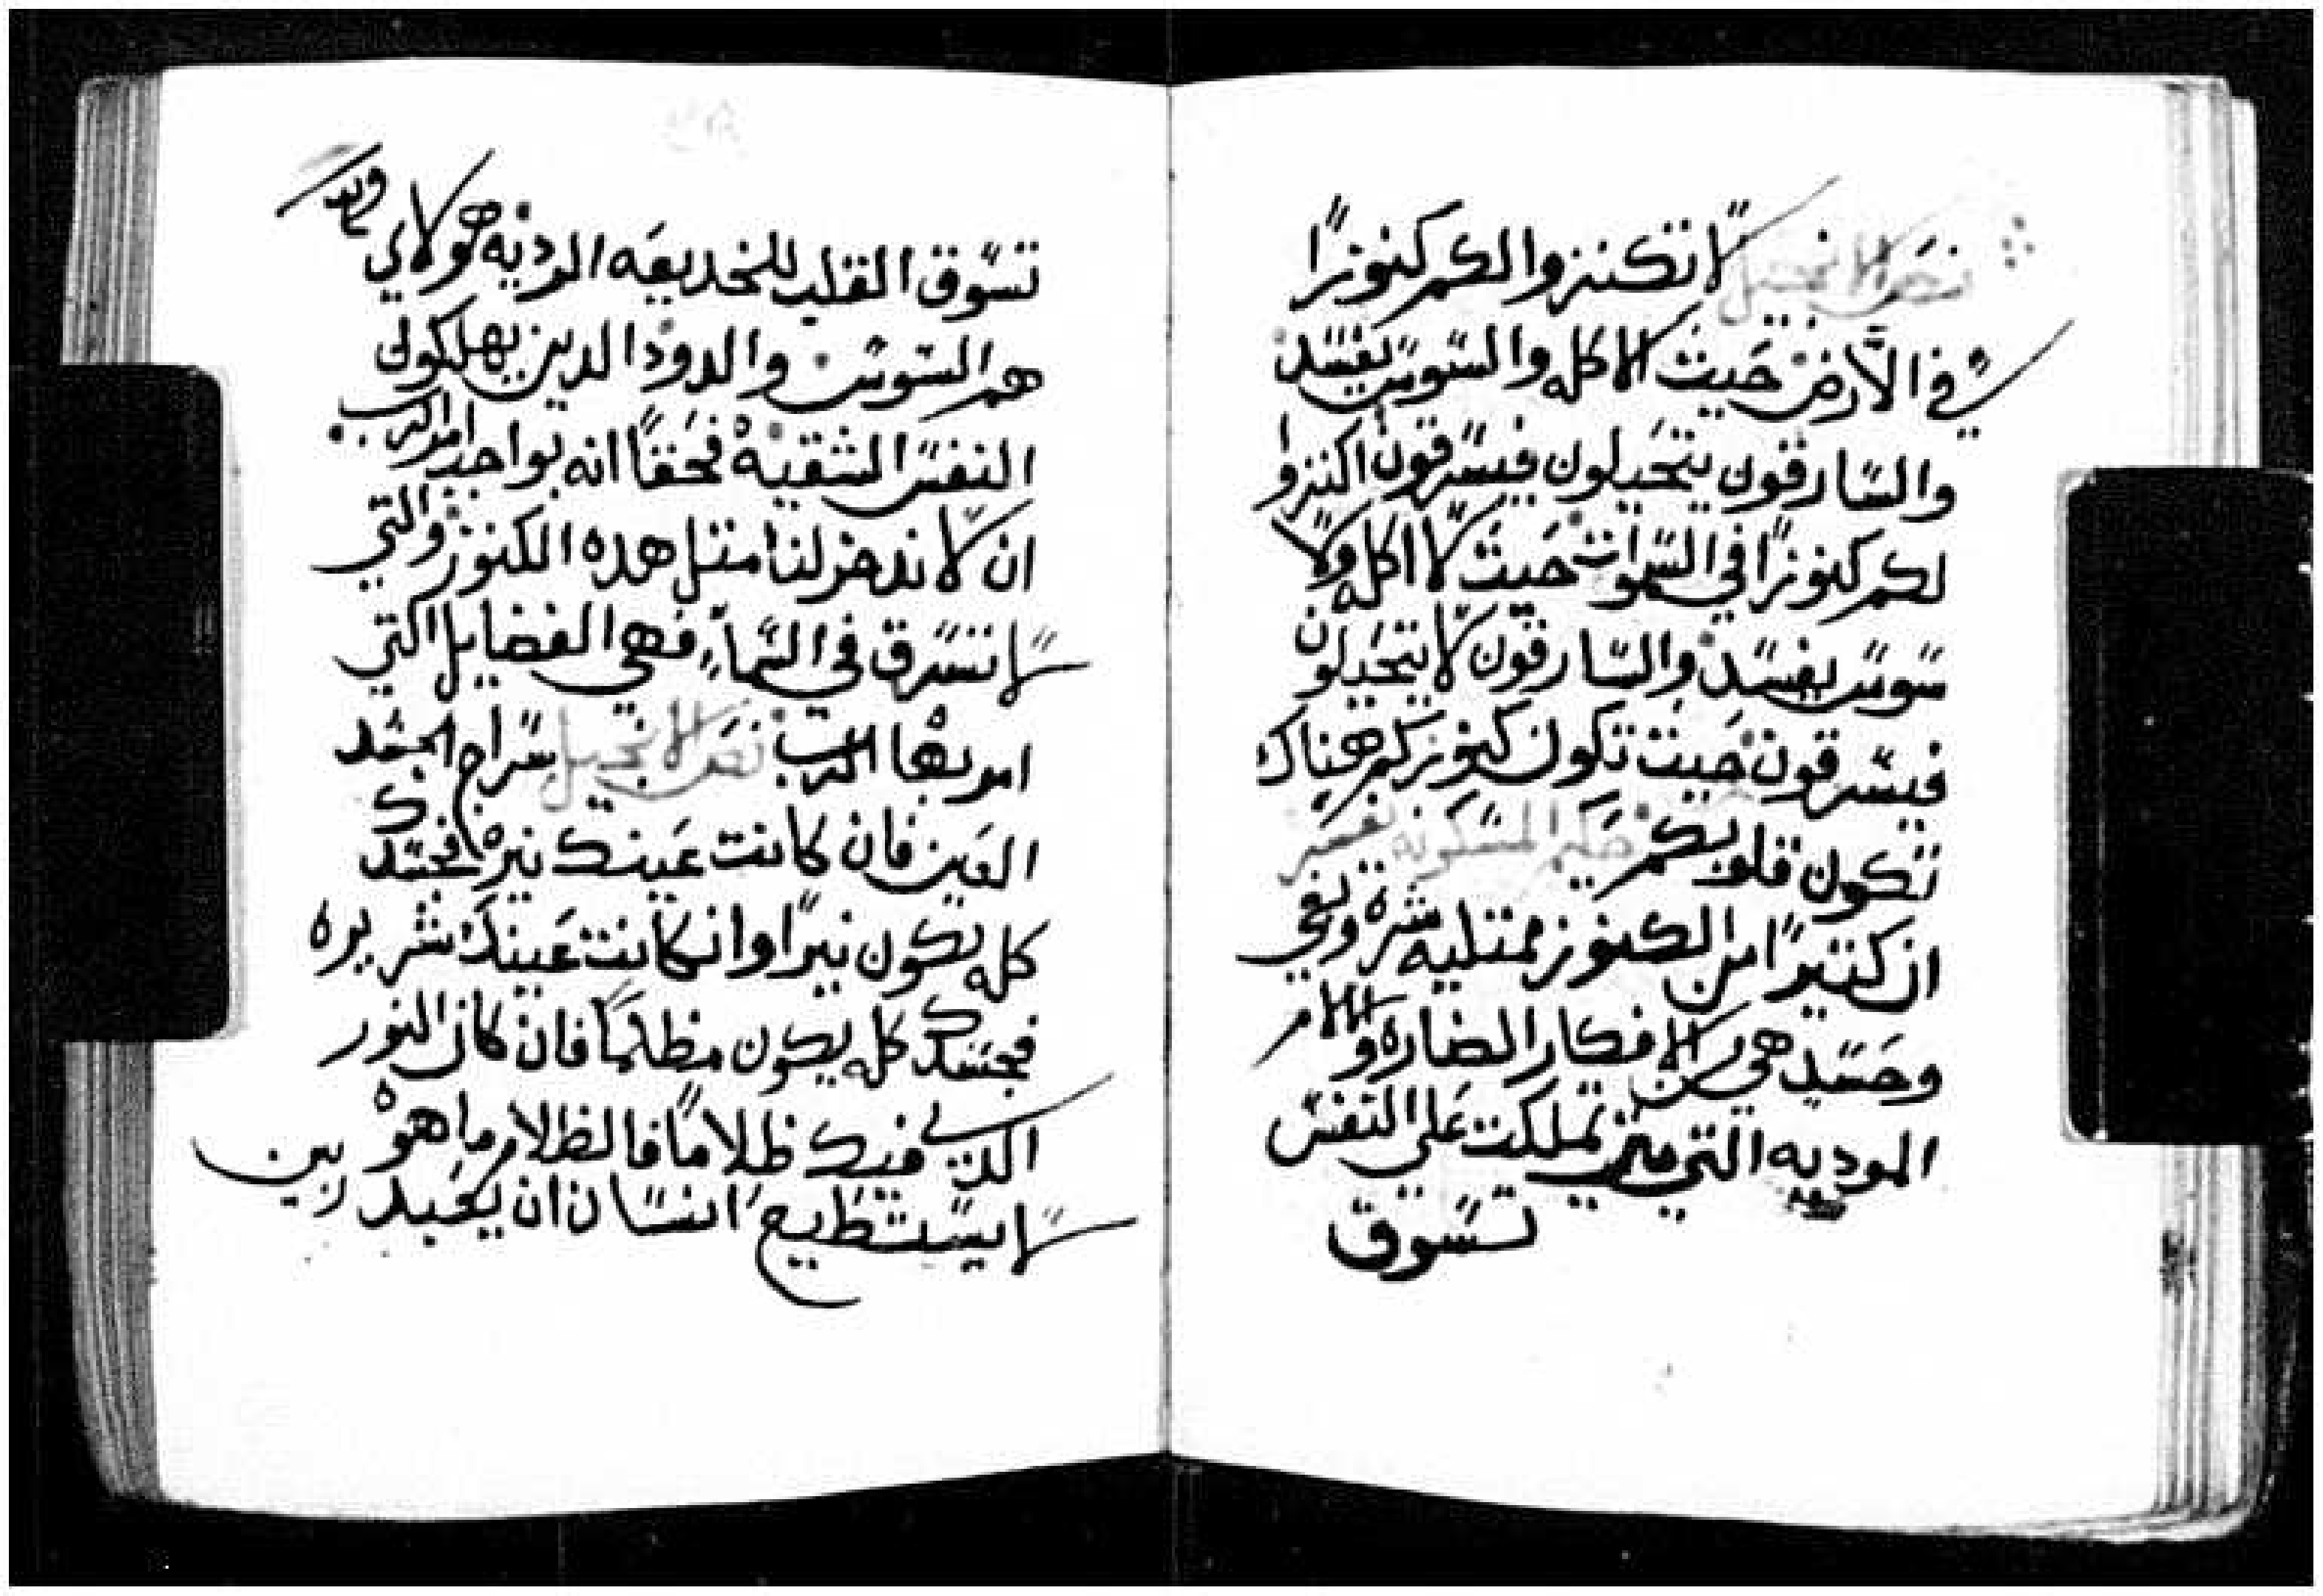 نص الانجيل لا تكنزوا لكم كنوزًا
في الأرض حيث الاكله والسوس يفسد
والسارقون يتحيلون فيسرقون اكنزوا
لكم كنوزًا في السموات حيث لا اكله ولا
سوس يفسد والسارقون لا يتحيلون
فيسرقون حيث تكون كنوزكم هناك
تكون قلوبكم حكيم المسكونه يفسر
ان كثيرًا من الكنوز ممتليه شره وبغي
وحسد هي الافكار الضاره والالام
الموديه التي متى تملكت على النفس
تسوق
تسوق القلب للخديعه الرديه هولاي
هم السوس والدود الدين يهلكون
النفس الشقيه فحقًا انه بواجب امر الرب
ان لا ندخر لنا مثل هده الكنوز والتي
لا تسرق في السماء فهي الفضايل التي
امر بها الرب نص الانجيل سراج الجسد
العين فان كانت عينك نيره فجسدك
كله يكون نيرًا وان كانت عينك شريره
فجسدك كله يكون مظلمًا فان كان النور
الدي فيك ظلامًا فالظلام ما هو
لا يستطيع انسان ان يعبد ربين